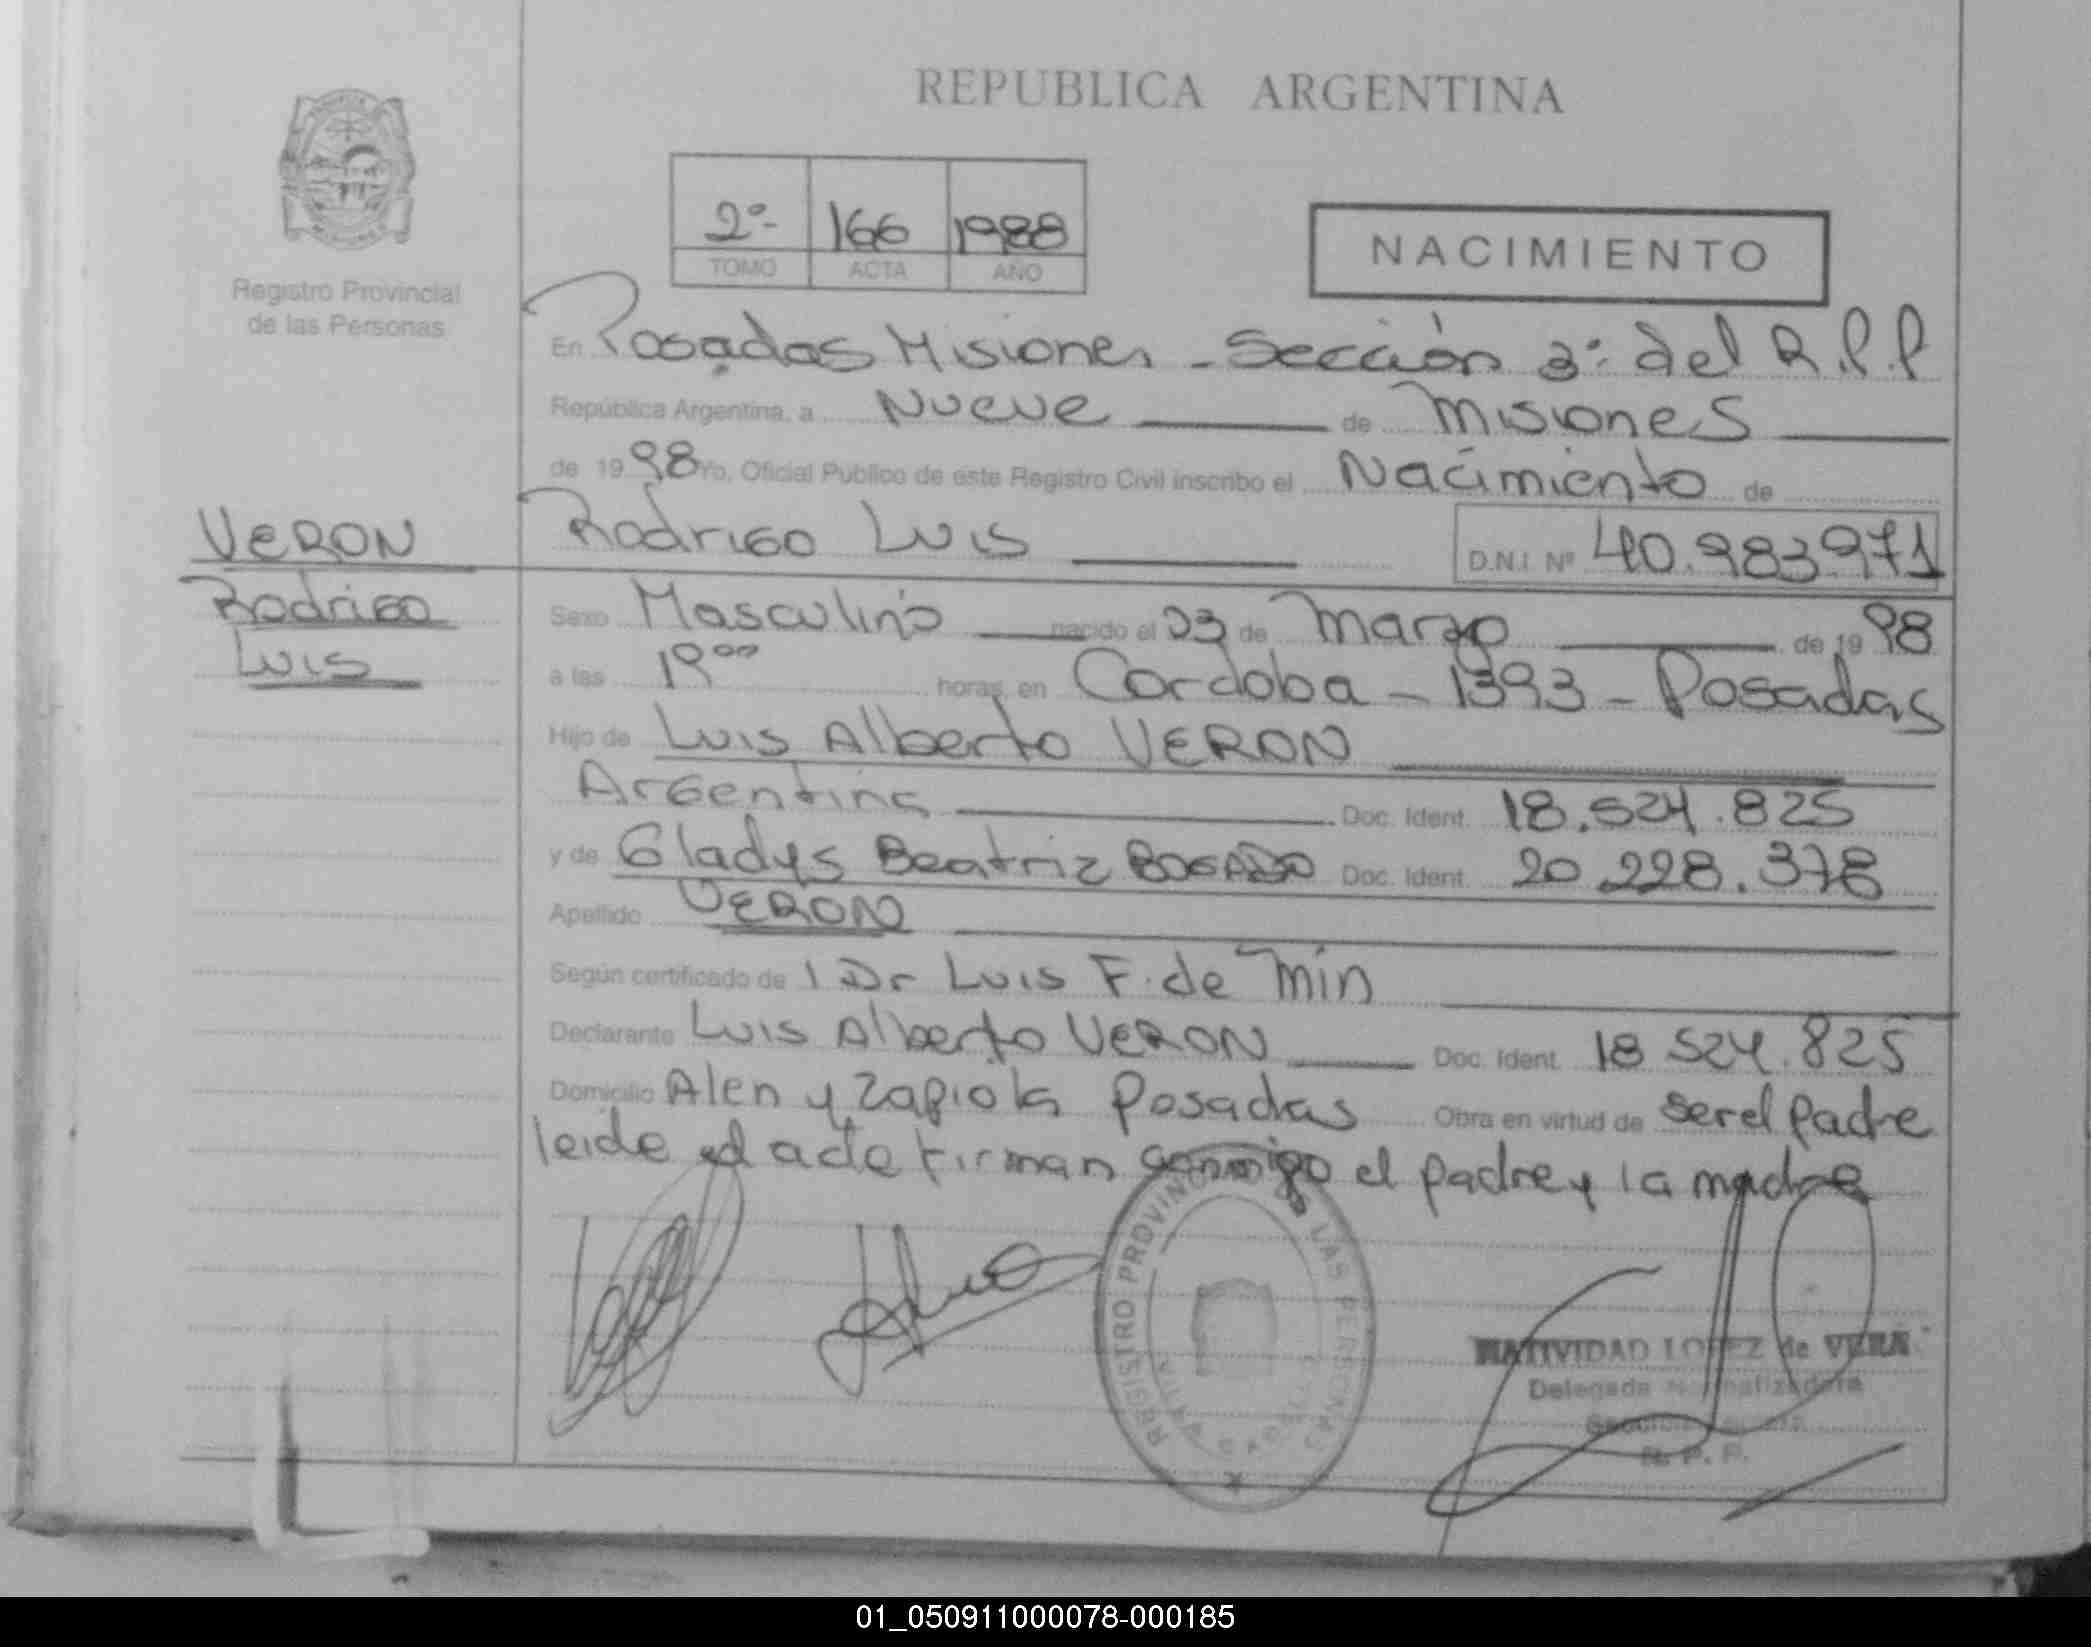 REPUBLICA ARGENTINA
2º- 166 1988
TOMO ACTA AÑO
NACIMIENTO
Registro Provincial
de las Personas
En Posadas Misiones - Sección 3º del R.P.P
República Argentina, a Nueve de Misiones
de 1998 Yo, Oficial Publico de este Registro Civil inscribo el Nacimiento de
VERON
Rodrigo
Luis
Rodrigo Luis D.N.I. Nº 40.983971
Sexo Masculino nacido el 23 de Marzo de 1998
a las 19ºº horas, en Cordoba - 1393 - Posadas
Hijo de Luis Alberto VERON
Argentina Doc. Ident. 18.524.825
y de Gladys Beatriz BOGADO Doc. Ident. 20 228.378
Apellido VERON
Según certificado de 1 Dr Luis F. de Min
Declarante Luis Alberto VERON Doc. Ident. 18 524.825
Domicilio Alen y Zapiola Posadas Obra en virtud de ser el Padre
leide el acta firman conmigo el padre y la madre
REGISTRO PROVINCIAL LAS PERSONAS
NATIVIDAD LOPEZ de VERA
Delegada Normalizadora
R. P. P.
01_050911000078-000185